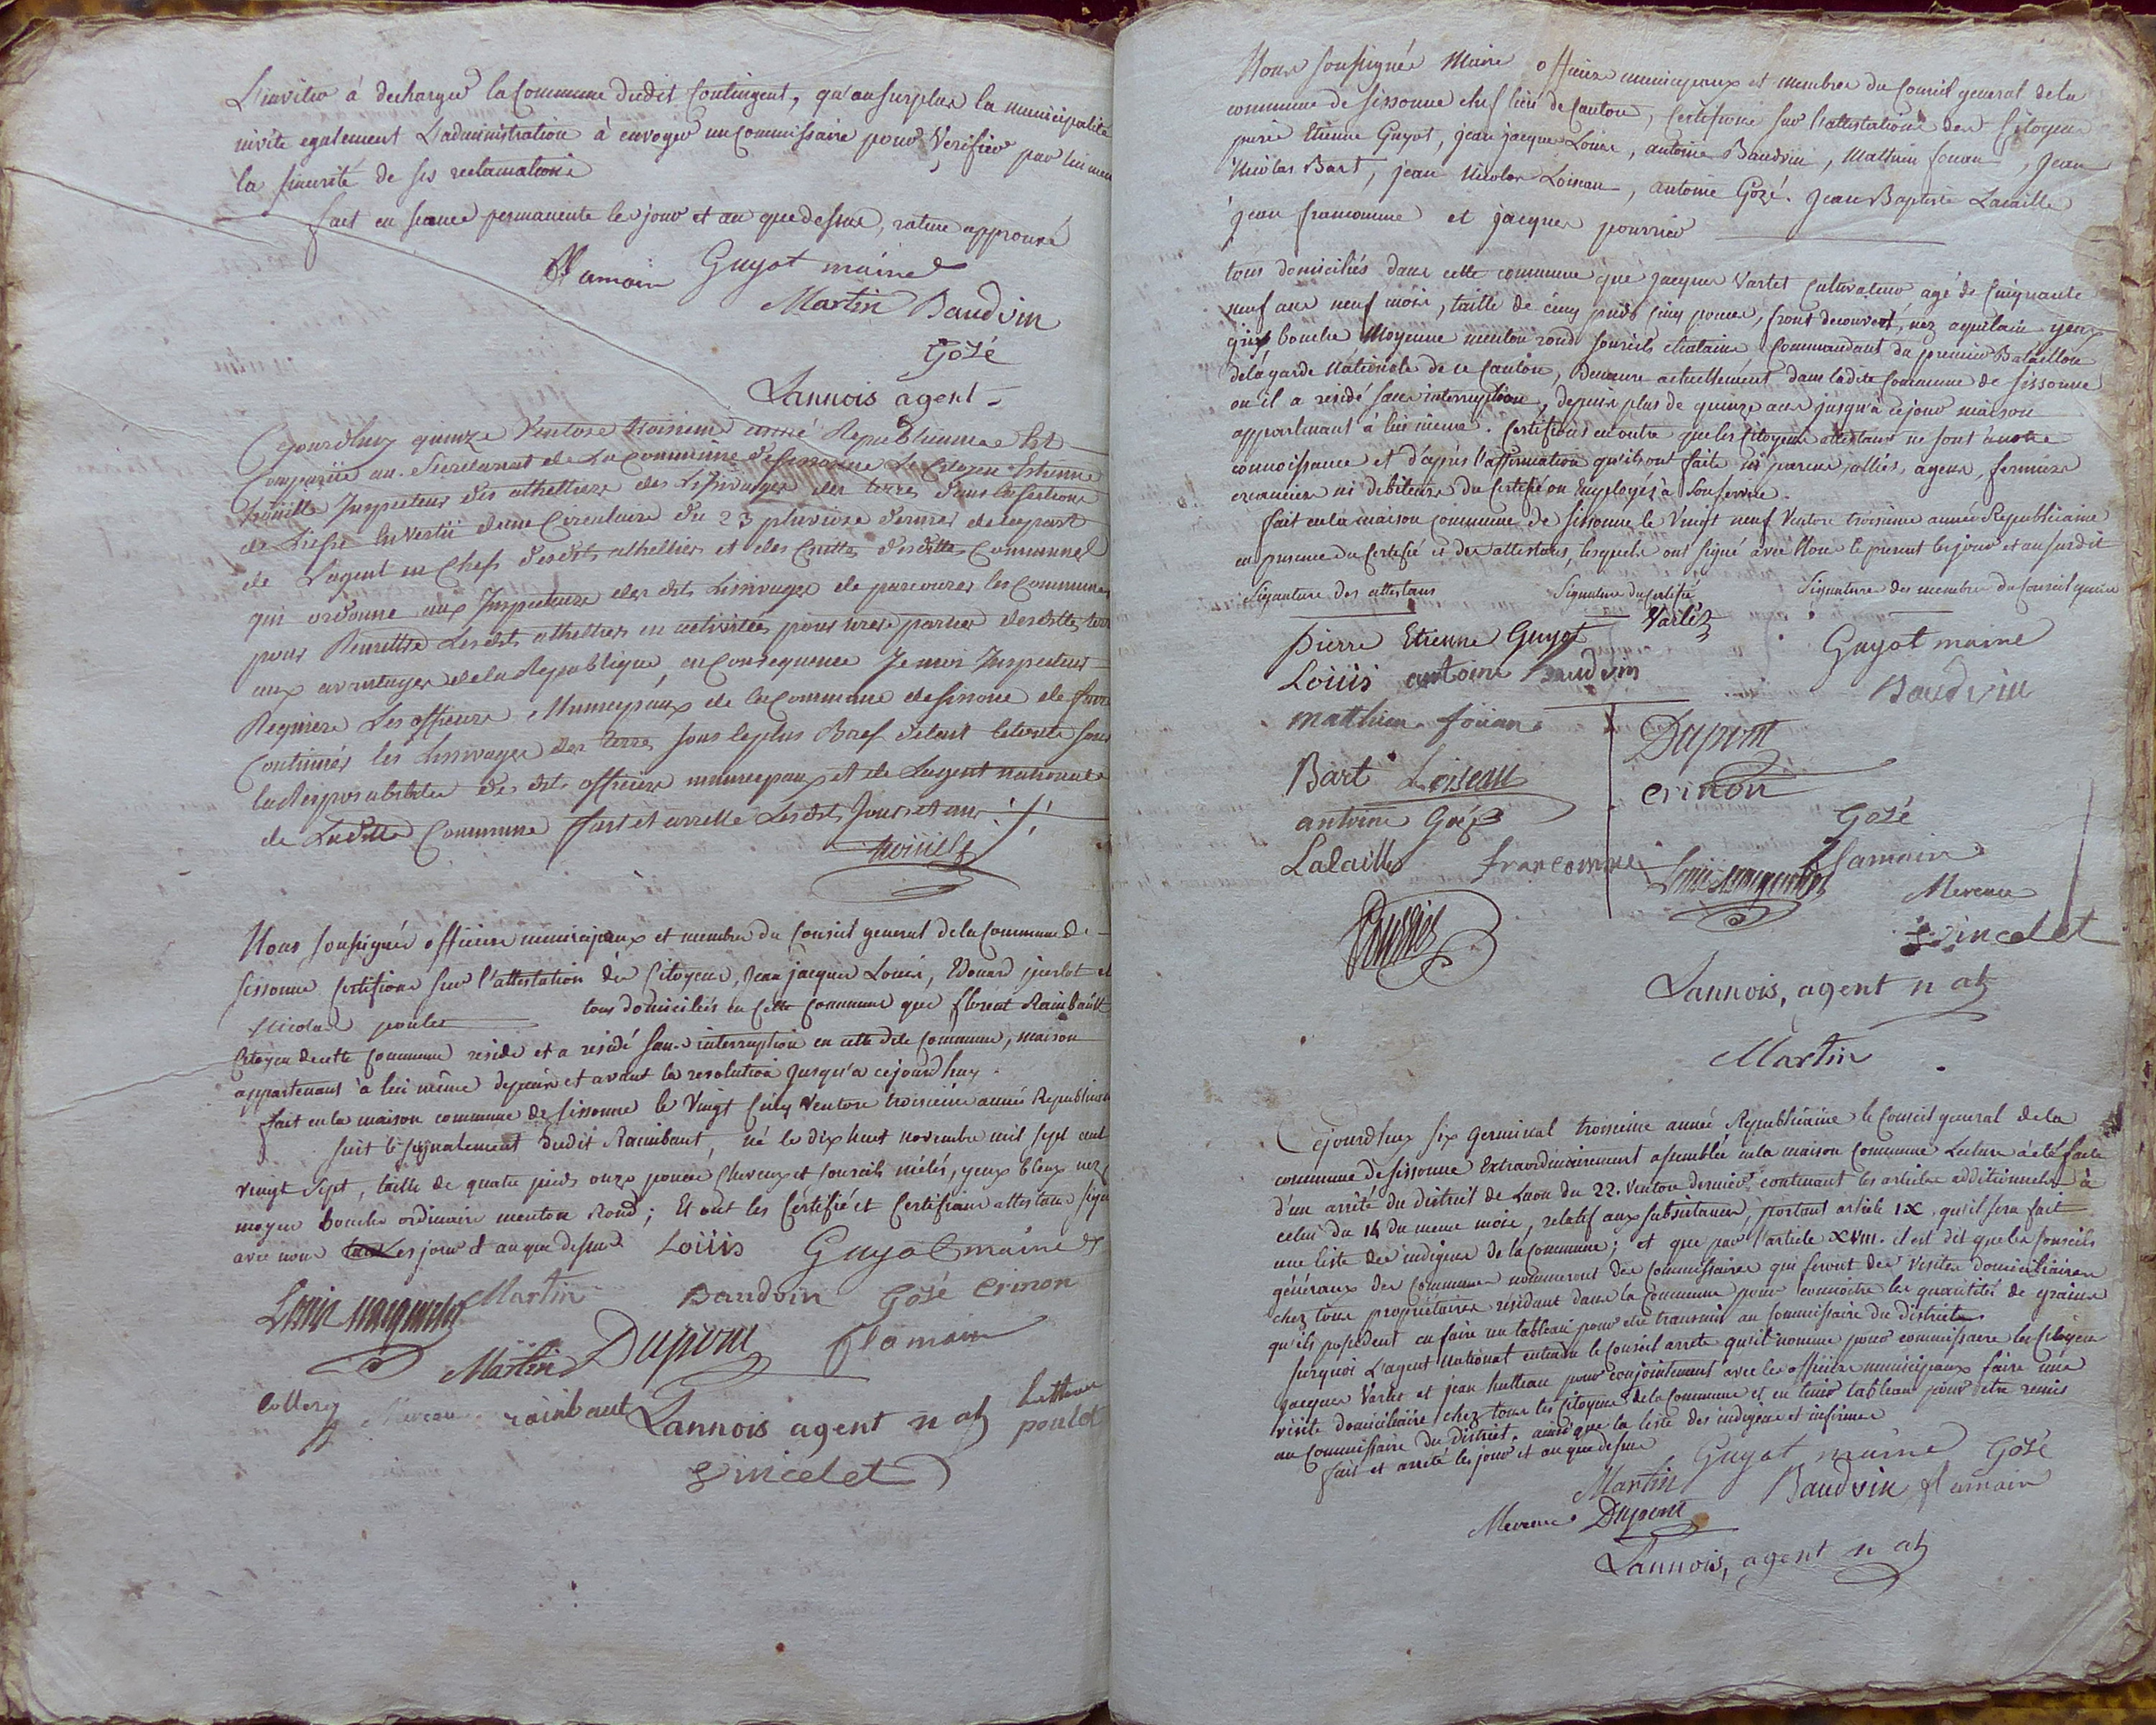 L'inviter à decharger la Commune dudit Contingent, qu'au surplus la municipalité
invite egalement L'administration à envoyer un Commissaire pour Verifier par lui meme
la sincerité de ses reclamations
fait en seance permanente les jour et an que dessus, rature approuvé
flamain Guyot maire
Martin Baudvin
Gozé
Lannois agent
Cejourdhuy quinze Ventose troisieme année Republicaine Est
Comparüe au Secretariat de La Commune de Sissonne Le Citoyen Etienne
Inspecteur des athelliers des Lessivages des terres dans la section
de Liesse En Vertü d'une Circulaire du 23 pluviose dernier de la part
de L'agent en Chef desdits athelliers et des Cuittes desdittes Communes
qui ordonne aux Inspecteurs des dits Lessivages de parcourir les Communes
pour Remettre Lesdits athelliers en activitées pour tirer partie desdittes terres
aux avantages de la Republique, en Consequence Je moi Inspecteur
Requiere Les officiers Municipaux de la Commune de Sissone de faire
Continuer les Lessivages des terres sous le plus Bref delait le tout sous
la Responsabilitée des dits officiers municipaux et de L'agent national
de Laditte Commune fait et arretté Lesdits Jour et an
Nous soussignés officiers municipaux et membres du Conseil general de la Commune de
Sissonne certifions sur l'attestation des Citoyens, Jean jacques Louis, Edouard et
Nicolas poulet tous domiciliés en cette Commune que florent Raimbault
Citoyen de cette Commune reside et a residé sans interruption en cette dite Commune, maison
appartenant à lui même depuis et avant la revolution jusqu'a cejourdhuy.
fait en la maison commune de Sissonne le Vingt Cinq Ventose troisieme année Republicaine
suit le signalement dudit Raimbaut, né le dix huit novembre mil sept cent
vingt sept, taille de quatre pieds onze pouces Cheveux et sourcils mélés, yeux bleux nez
moyen bouche ordinaire menton Rond; Et ont les Certifié et Certifians attestans signé
avec nous Les jour et an que dessus Loüis Guyot maire
Louis Martin Baudvin Gozé Crinon
Martin Dupont flamain
Mereau rainbaut Lannois agent n at poulet
Vincelet
Nous soussignés Maire officiers municipaux et membres du Conseil general de la
commune de Sissonne chef lieu de Canton, certifions sur l'attestation des Citoyens
piere Etienne Guyot, jean jacques Louis, antoine Baudvin, Mathieu fouan, Jean
Nicolas Bart, jean Nicolas Loiseau, antoine Gozé. Jean Baptiste Lacaille
jean francomme et jacques pourrier
tous domiciliés dans cette commune que Jacques Vartet Cultivateur agé de Cinquante
neuf ans neuf mois, taille de cinq pieds cinq pouces, front decouvert, nez aquilain yeux
gris bouche Moyenne menton rond sourcils chataine Commandant du premier Bataillon
de la garde Nationale de ce Canton, Demeure actuellement dans ladite Commune de Sissonne
ou il a residé sans interruption, depuis plus de quinze ans jusqu'à ce jour maison
appartenant à lui même. Certifions en outre que les Citoyens attestans ne sont à notre
connoissance et d'après l'affirmation qu'ils ont faite ni parens, alliés, agens, fermiers
creanciers ni debiteurs du Certifié ou Employés à son service.
fait en la maison commune de Sissonne le Vingt neuf Ventose troisieme année Republicaine
en presence du Certifié et des attestans, lesquels ont signé avec Nous le present les jour et an susdit
Signature des attestans Signature du Certifié Signature des membres du Conseil general
Varlet
pierre Etienne Guyot Guyot maire
Loüis antoine Baudvin Baudvin
matthieu foüan Dupont
Bart Loiseau crinon
antoine Gozé Gozé
Lacaille francomme Louis flamain
Mereau
pourrier Vincelet
Lannois, agent n at
Martin
Cejourdhuy six Germinal troisieme année Republicaine le Conseil general de la
commune de Sissonne Extraordinairement assemblée en la maison Commune Lecture a été faite
d'un arrêté du District de Laon du 22. Ventose dernier contenant les articles additionnels à
celui du 14 du meme mois, relatif aux subsistances, portant article IX qu'il sera fait
une liste des indigens de la Commune; et que par l'article XVIII. il est dit que les Conseils
généraux des Communes nommeront des Commissaires qui feront des visites domiciliaires
chez tous propriétaires résidant dans la Commune pour connoitre les quantités de grains
qu'ils possedent en faire un tableau pour etre transmis au Commissaire du District
surquoi L'agent National entendu le Conseil arrete qu'il nomme pour commissaires les Citoyens
jacques Vartet et jean hutteau pour conjointement avec les officiers municipaux faire une
visite domiciliaire chez tous les Citoyens de la Commune et en tenir tableau pour etre remis
au Commissaire du District. ainsi que la liste des indigens et infirmes
fait et arreté les jour et an que dessus Guyot maire Gozé
Martin Baudvin flamain
Mereau Dupont
Lannois, agent n at